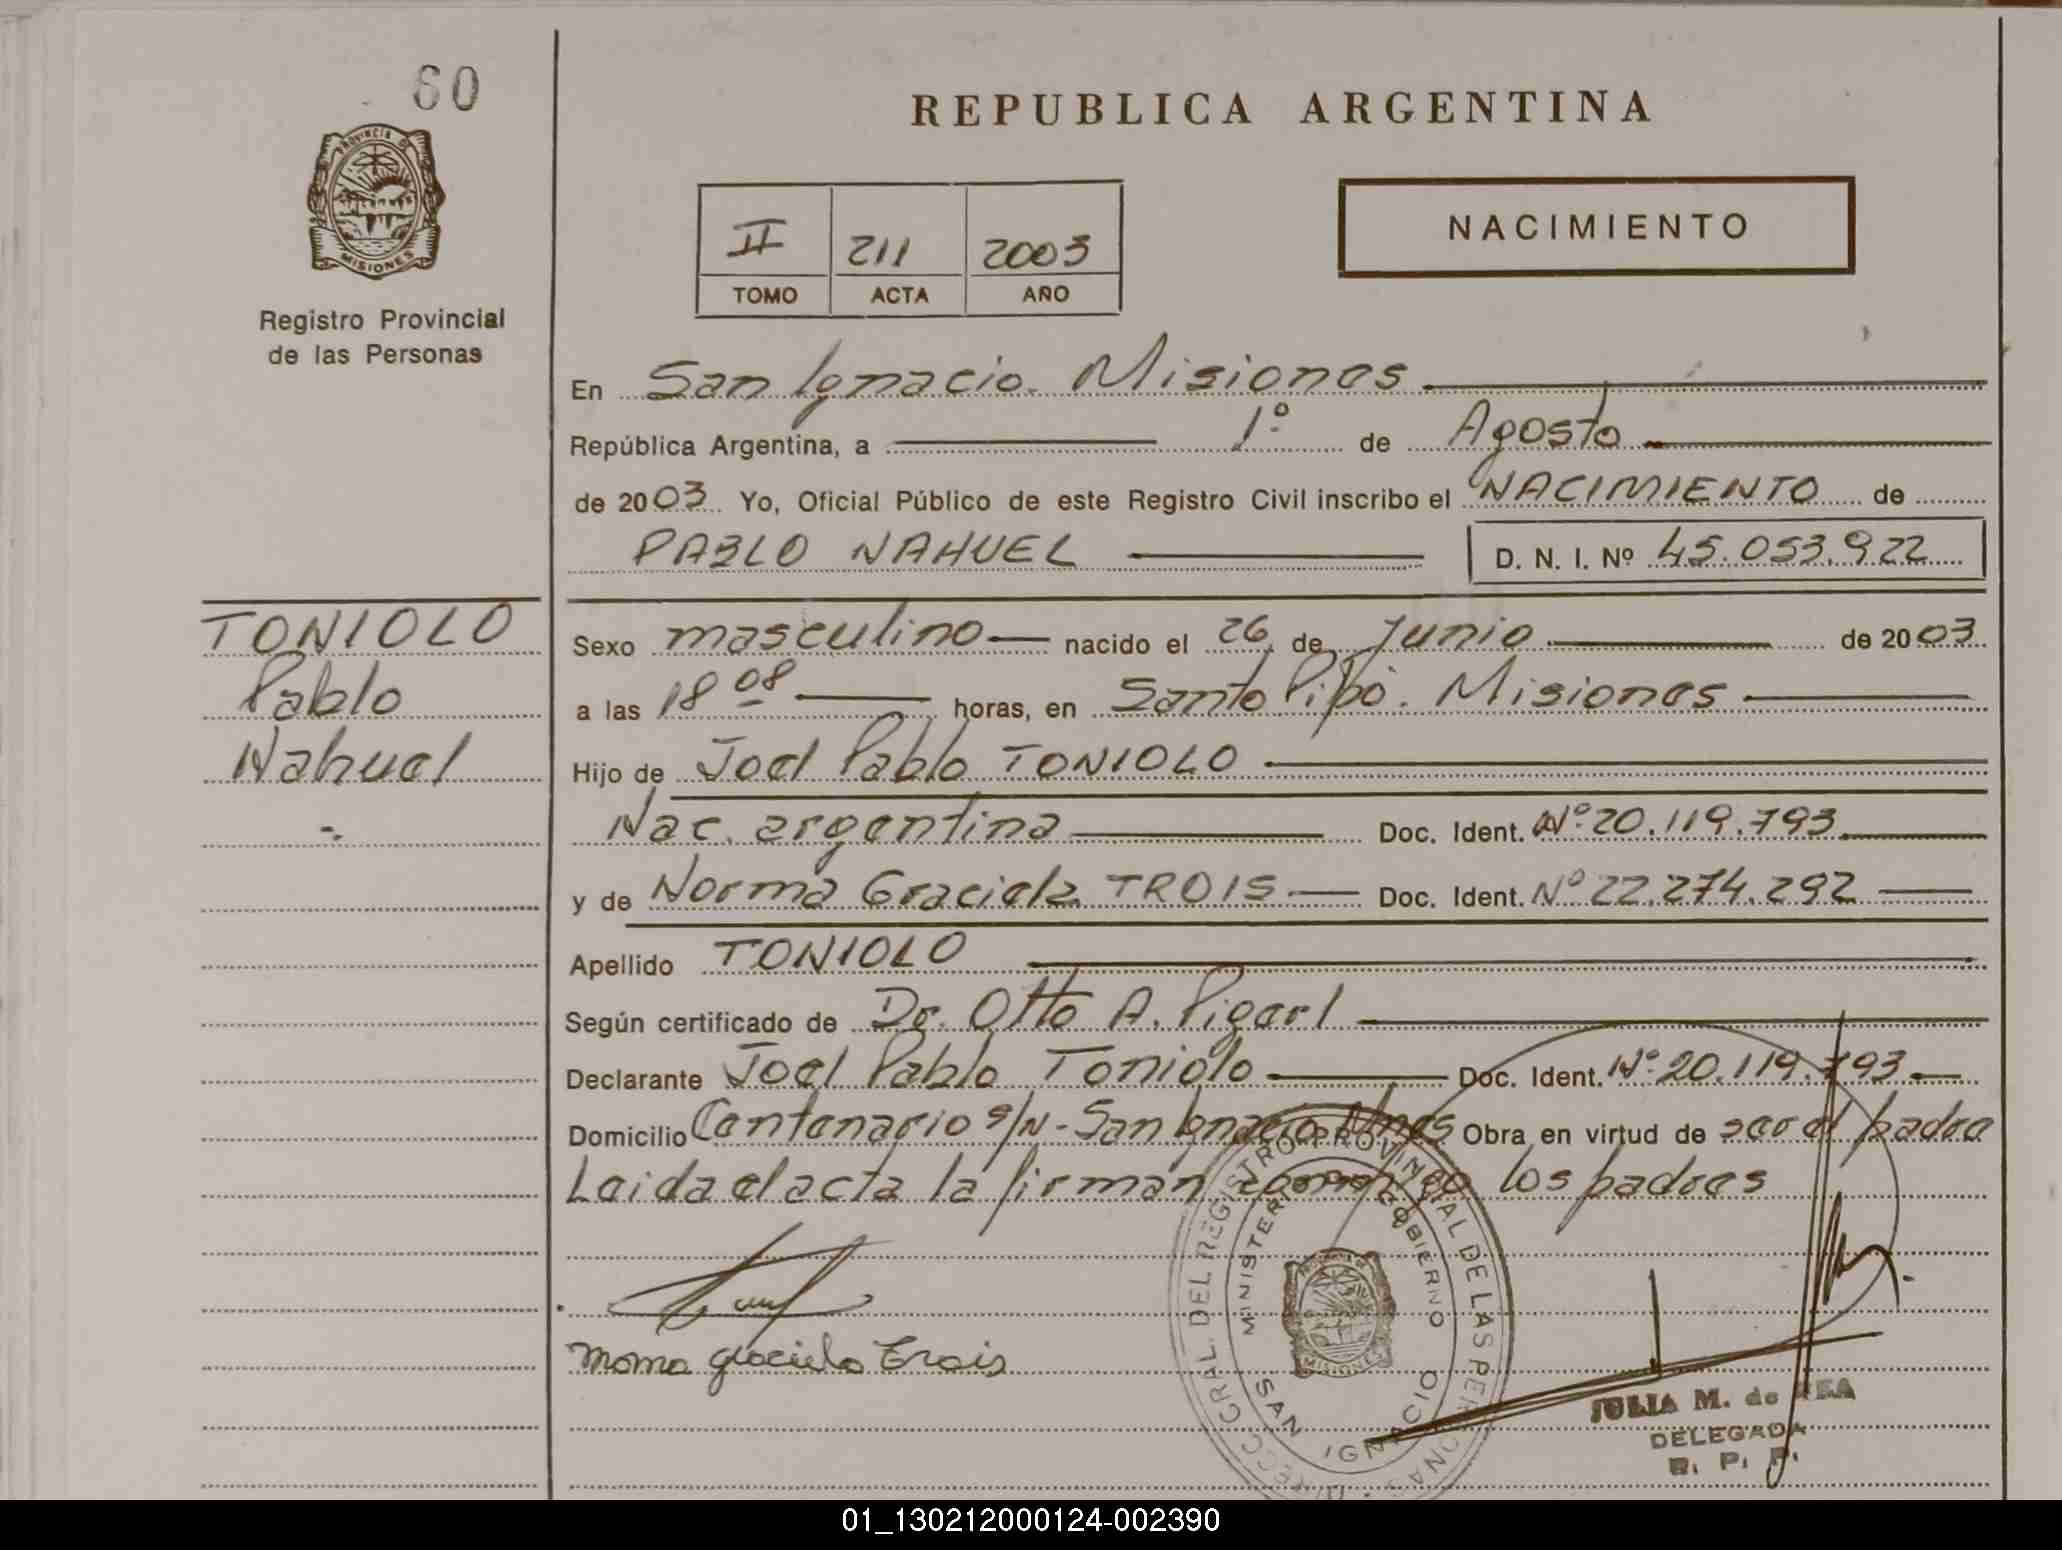 60
PROVINCIA DE
MISIONES
Registro Provincial
de las Personas
REPUBLICA ARGENTINA
II 211 2003
TOMO ACTA AÑO
NACIMIENTO
En San Ignacio. Misiones
República Argentina, a 1º de Agosto
de 2003 Yo, Oficial Público de este Registro Civil inscribo el NACIMIENTO de
PABLO NAHUEL D. N. I. Nº 45.053.922
TONIOLO
Pablo
Nahuel
Sexo masculino nacido el 26 de Junio de 2003
a las 18 08 horas, en Santo Pipó. Misiones
Hijo de Joel Pablo TONIOLO
Nac. argentina Doc. Ident. Nº 20.119.793
y de Norma Graciela TROIS Doc. Ident. Nº 22.274.292
Apellido TONIOLO
Según certificado de Dr. Otto A. Pigerl
Declarante Joel Pablo Toniolo Doc. Ident. Nº 20.119.793
Domicilio Centenario s/N - San Ignacio Mnes Obra en virtud de ser el padre
Leida el acta la firman conmigo los padres
Norma Graciela Trois
DIRECC. GRAL. DEL REGISTRO PROVINCIAL DE LAS PERSONAS
MINISTERIO DE GOBIERNO
MISIONES
SAN IGNACIO
JULIA M. de
DELEGADA
R. P. P.
01_130212000124-002390